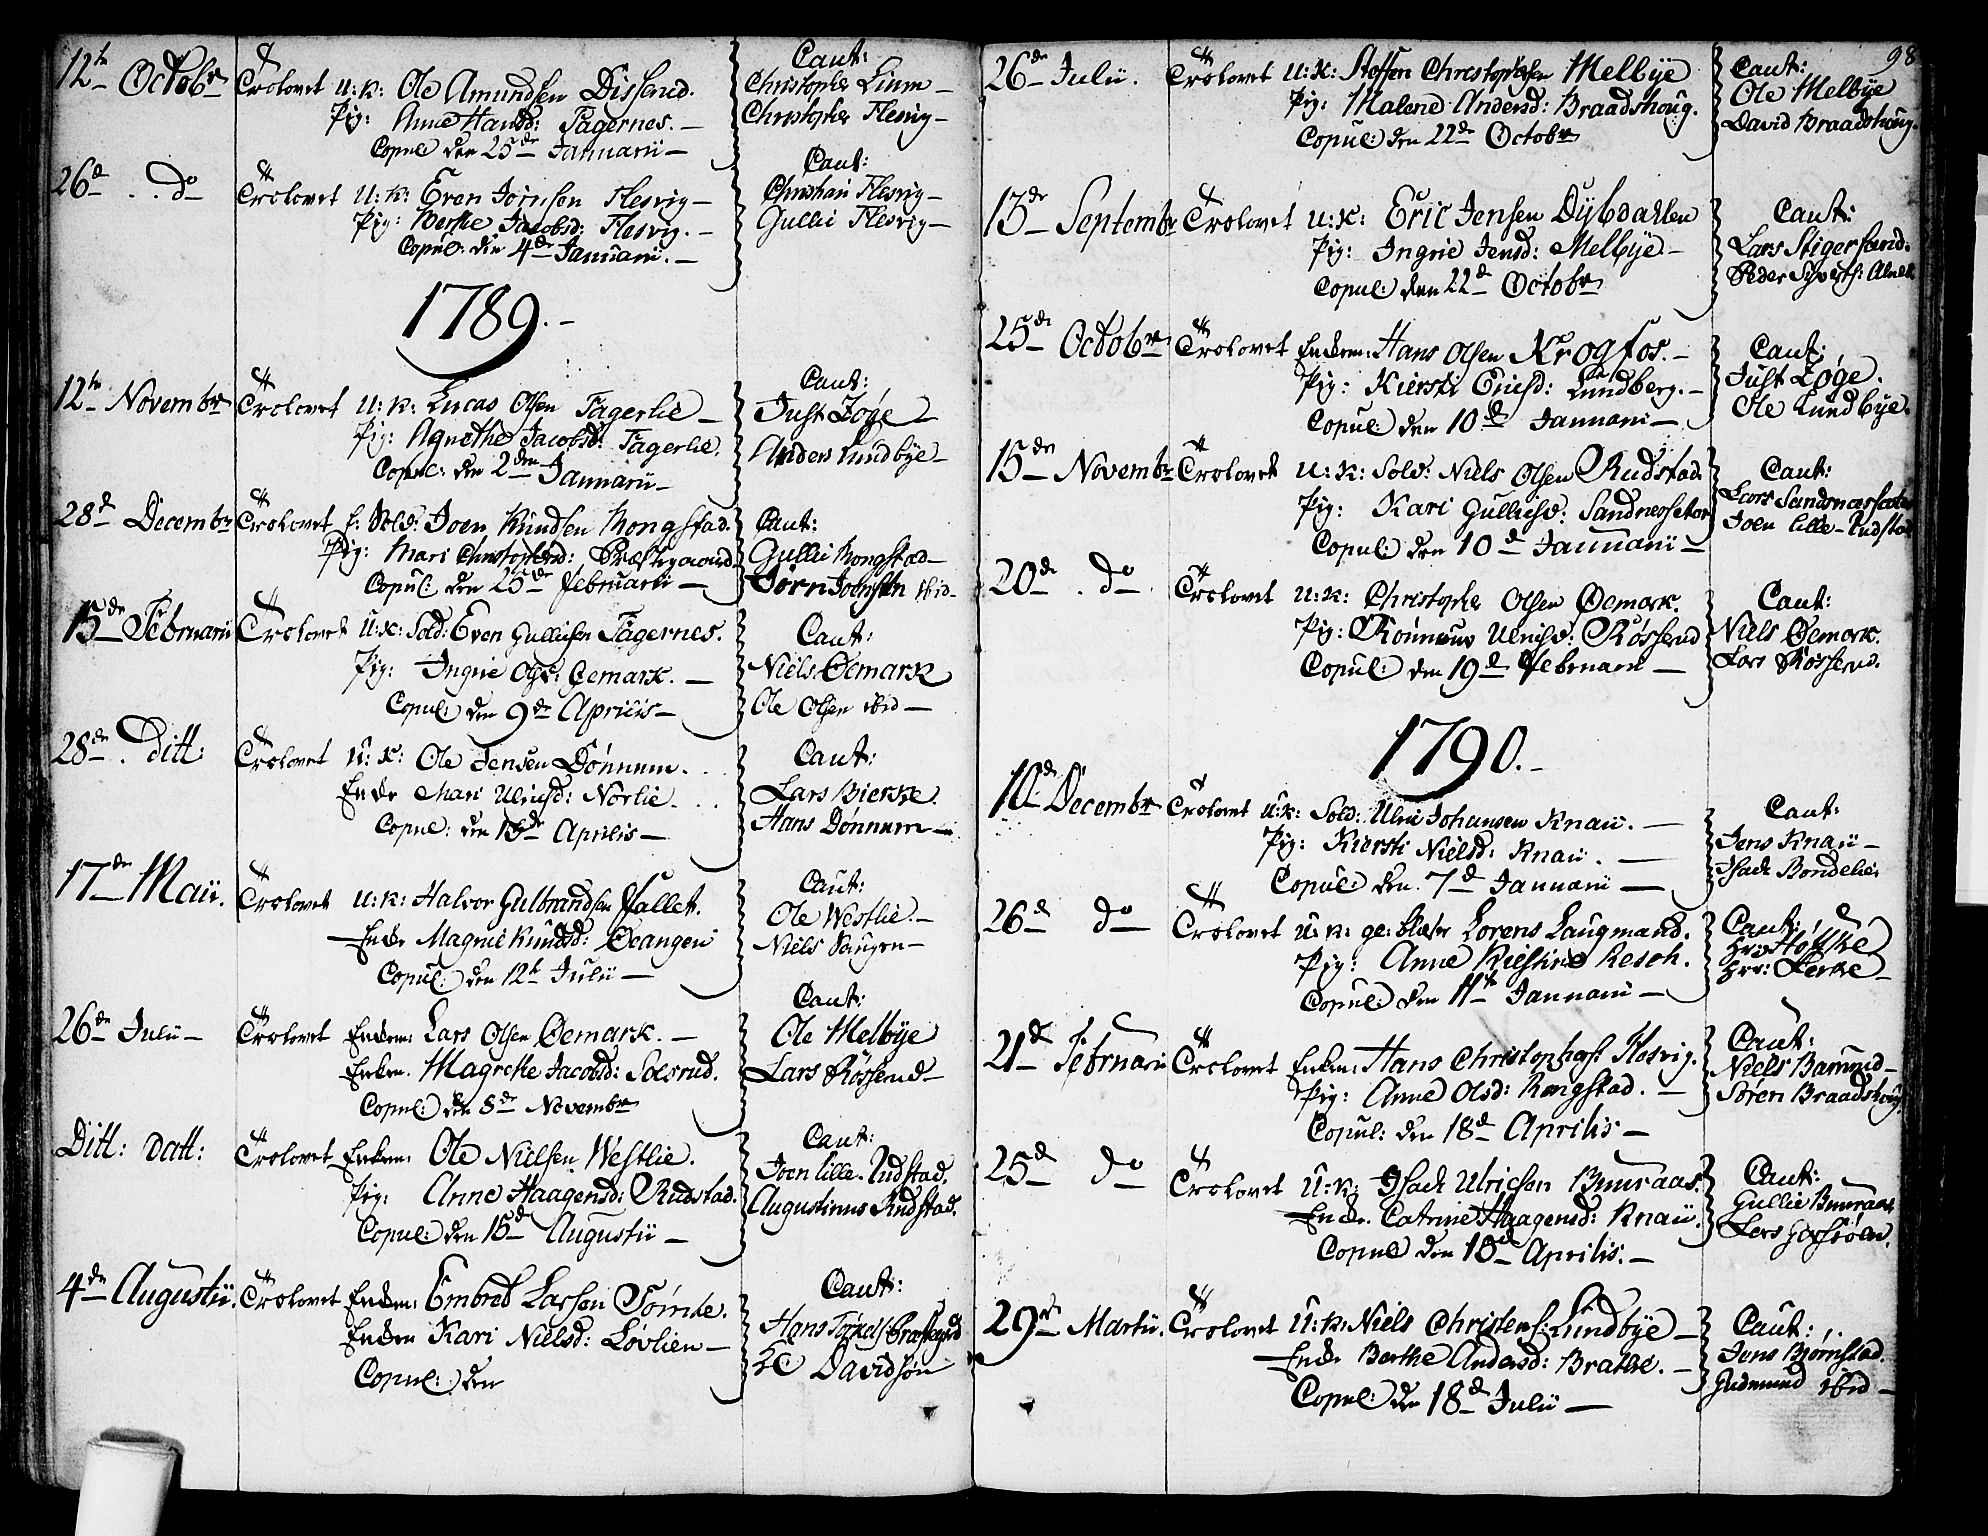 12te Octobr Trolovet U: K: Ole Amundsen Dissend.
Pig: Anne Hansd: Fagernes. —
Copul: den 25de Januarii —
Caut:
Christopher Lium —
Christopher Flesvig —
26d . . do Trolovet U: K: Even Jörnsen Flesvig —
Pig: Berthe Jacobsd: Flesvig. —
Copul: den 4de Januarii. —
Caut:
Christian Flesvig —
Gullic Flesvig —
1789. —
12te Novembr Trolovet U: K: Lucas Olsen Fagerlie —
Pig: Agnethe Jacobsd: Fagerlie.
Copul: den 2den Januarii —
Caut:
Just Zøge —
Anders Lundbye —
28d Decembr Trolovet Sold: Joen Knudsen Kongstad.
Pig: Mari Christophersd: Præstegaard.
Copul: den 25de Februarii —
Caut:
Gullic Kongstad —
Jörn Joensen ibid —
15de Februarii Trolovet U: K: Sold: Even Gullicsen Fagernes.
Pig: Ingrie Olsd: Øemark. —
Copul: den 9de Aprilis —
Caut:
Niels Øemark
Ole Olsen ibid —
28de . Ditt: Trolovet U: K: Ole Jensen Dønnum. . .
Enke Mari Ulricsd: Norlie. . .
Copul: den 13de Aprilis —
Caut:
Lars Bierke.
Hans Dønnum —
17de Maii. Trolovet U: K: Halvor Gulbrandsen Fallet.
Enke Magnil Knudsd: Ovangen
Copul: den 12te Julii —
Caut:
Ole Westlie. —
Niels Haugen —
26de Julii — Trolovet Enkem: Lars Olsen Øemark. —
Enken. Magrethe Jacobsd: Solsrud.
Copul: den 8de Novembr
Caut:
Ole Melbye
Lars Røssend —
Ditt: Datt: Trolovet Enkem: Ole Nielsen Westlie.
Pig: Anne Haagensd: Rudstad.
Copul: den 15d Augustii —
Caut:
Joen Lille-Rudstad.
Augustinus Rudstad.
4de Augustii. Trolovet Enkem: Embret Larsen Tömte.
Enken Kari Nielsd: Lövlien —
Copul: den
Caut:
Hans
Davidsøn
98
26de Julii. Trolovet U: K: Steffen Christophersen Melbye
Pig: Malene Andersd: Braadshoug.
Copul: den 22de Octobr
Caut:
Ole Melbye
David Braadshoug.
13de Septembr Trolovet U: K: Eric Jensen Dybdahlen
Pig: Ingrie Jensd: Melbye —
Copul: den 22d Octobr
Caut:
Lars Stigersand.
Peder Syverts:
25de Octobr Trolovet Enkem: Hans Olsen Krogfos. —
Pig: Kiersti Ericsd: Lundberg. —
Copul: den 10d Januarii —
Caut:
Just Zøge.
Ole Lundbye.
15de Novembr Trolovet U: K: Sold: Niels Olsen Rudstad.
Pig: Kari Gullicsd: Sandnessetor
Copul: den 10d Januarii —
Caut:
Lars Sandnessetor
Joen Lille-Rudstad
20de . do Trolovet U: K: Christopher Olsen Øemark.
Pig: Rönnaug Ulricsd: Røssend
Copul: den 19d Februarii —
Caut:
Niels Øemark.
Lars Røssend.
1790. —
10d Decembr Trolovet U: K: Sold: Ulric Johansen Knaii. —
Pig: Kiersti Nielsd: Knaii. —
Copul: den 7d Januarii —
Caut:
Jens Knaii —
Isach Rondelie.
26d do Trolovet U: K: Lorens Laugmand.
Pig: Anne Kirstine Resch.
Copul: den 11te Januarii —
Caut:
Hrr:
Hrr: Lerke —
21d Februari Trolovet Enkem: Hans Christophers: Kosvig.
Pig: Anne Olsd: Kongstad. —
Copul: den 18d Aprilis —
Caut:
Niels Barrund —
Søren Braadshoug.
25d do Trolovet U: K: Isach Ulricsen Buuraas.
Enke. Catrine Haagensd: Knaii.
Copul: den 18d Aprilis. —
Caut:
Gullic Buuraas
Lars
29de Martii. Trolovet U: K: Niels Christens: Lundbye —
Enke Berthe Andersd: Brathe. —
Copul: den 18d Julii —
Caut:
Jens Bjørnstad.
Gudmund ibid —